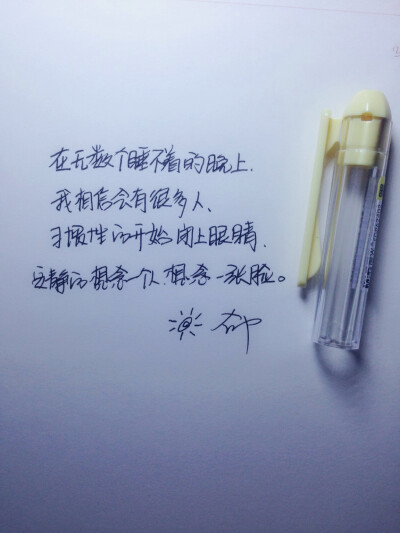 在无数个睡不着的晚上.
我相信会有很多人、
习惯性的开始闭上眼睛.
安静的想念一个人.想念一张脸。